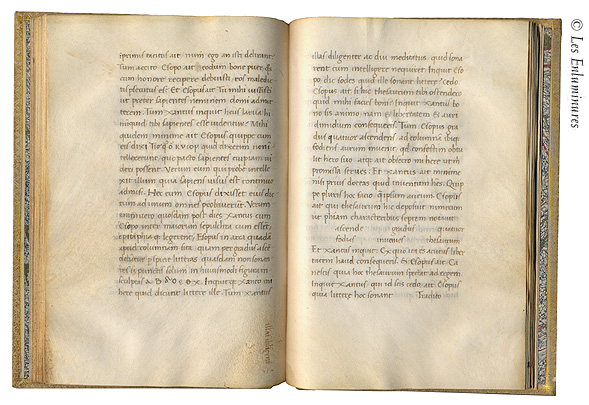 iprimus tantus ait num ego an isti delirant
Tum accito Esopo ait Eodem bone puer
cum honore recipere debuisti, eos maledic
tis plecutus es? Et Esopus ait Tu mihi iussisti
ut preter sapientes neminem domi admit
terem. Tum Xantus inquit heus larva hi
ne sapientes esse videntur? Mihi
quidem minime ait Esopus quippe cum
eis dixi quid dixerim non in
tellexerunt, quo pacto sapientes cuipiam vi
deri possent. Verum cum qui probe intelle
xit illum quia sapiens visus est continuo
admisi. Hec cum Esopus dixisset eius dic
tum ad unum omnes probaverunt. Verum
enimvero quosdam post dies Xantus cum
Esopo inter maiorum sepulchra cum esset
epitaphia que legeret, Esopus in arca quadam
apud columnam sita quam per gradus asce
debatur conspiciens litteras quasdam non sonan
tes is punctis solum in huiusmodi figuram
sculptas Inquit Xanto mi
here quid dicunt littere ille. Tum Xantus
illas diligenter ac diu meditatus, quid sona
rent cum intelligere nequiret. Inquit Eso
po dic sodes quid ille sonant littere? cedo
Esopus ait si hic thesaurum tibi ostendero
quid mihi facies boni? Inquit Xantus bo
no sis animo nam et libertatem et auri
dimidium consequeris. Tum Esopus gra
dus quatuor ascendens ad columna ibique
fodiens aurum invenit quod confestim obtu
lit hero suo atque ait obsecro mi here ut in
promissa serves: Et Xantus ait minime
nisi prius doceas quid inventum hos. Quip
pe pluris hoc facio quam ipsum aurum. Esopus
ait qui thesaurum hic deposuit nimirum
ut characteribus septem notavit
ascende gradus quatuor
fodias invenies thesaurum
Et Xantus inquit: Ex quo ita es acutus liber
tatem haud consequeris. Et Esopus ait. Ca
quia hoc thesaurum spectat ad regem.
Inquit Xantus qui id scis cedo ait. Esopus
quia littere hoc sonant. Tradito
© Les Enluminures